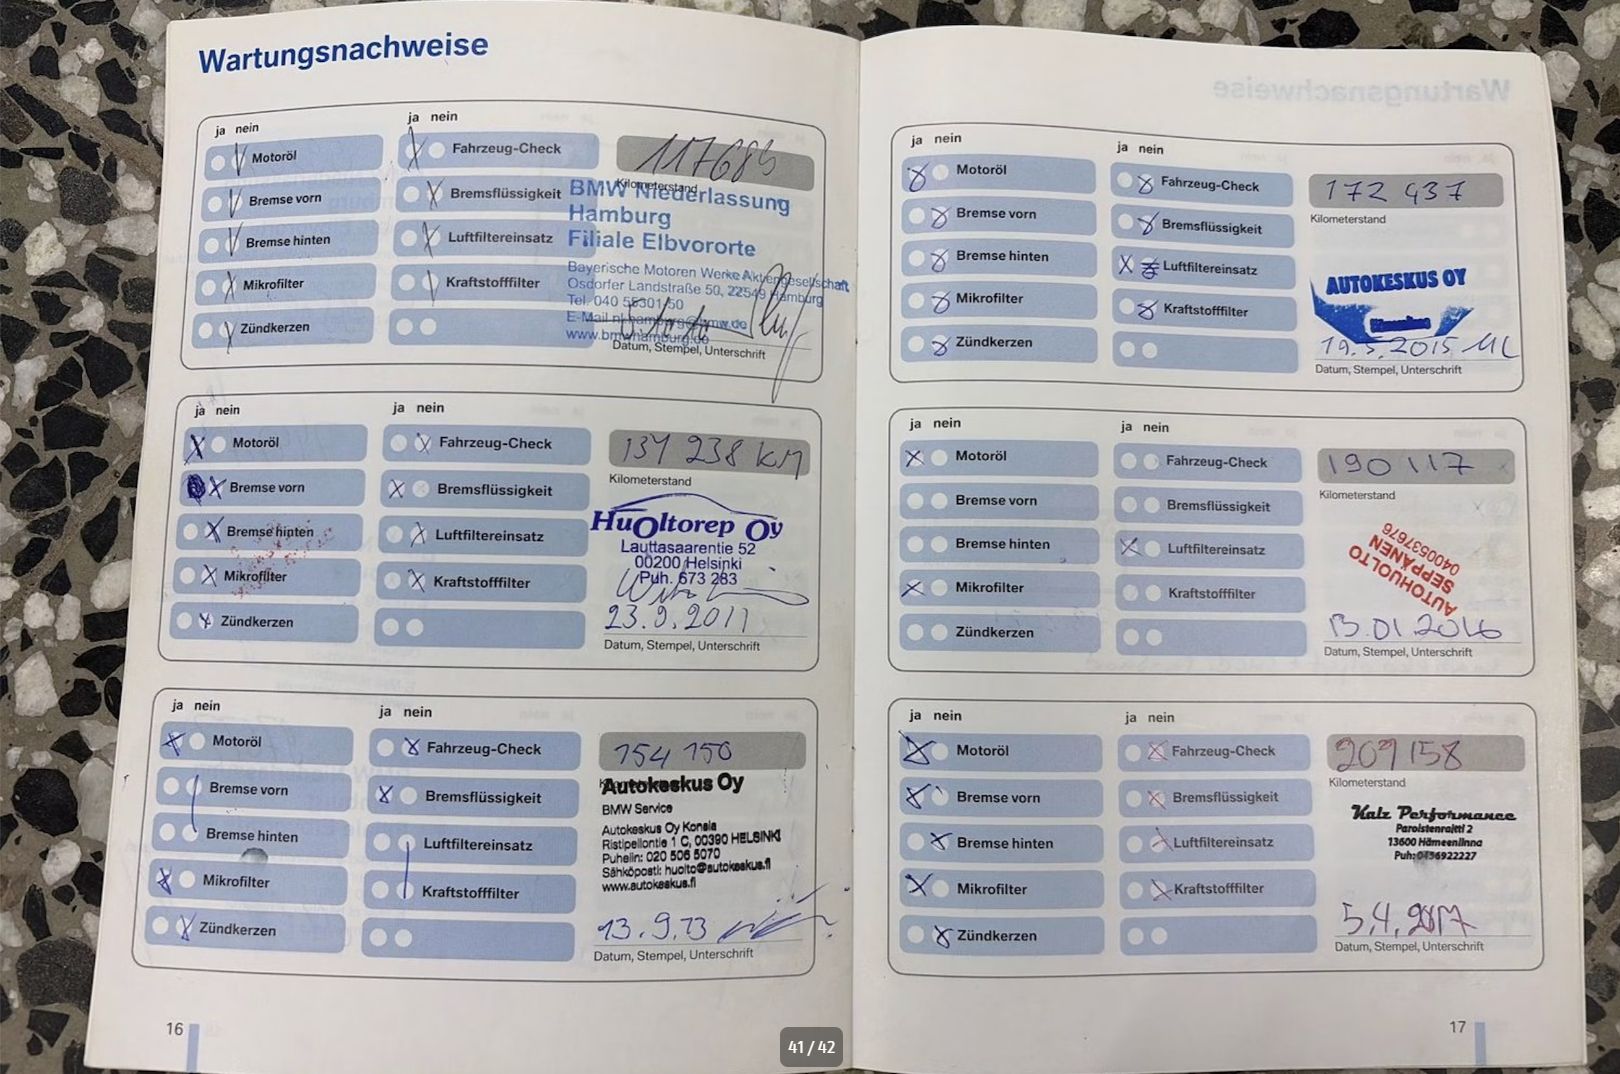 Wartungsnachweise
ja nein
Motoröl
Bremse vorn
Bremse hinten
Mikrofilter
Zündkerzen
ja nein
Fahrzeug-Check
Bremsflüssigkeit
Luftfiltereinsatz
Kraftstofffilter
Kilometerstand
BMW Niederlassung
Hamburg
Filiale Elbvororte
Bayerische Motoren Werke Aktiengesellschaft
Osdorfer Landstraße 50, 22549 Hamburg
Tel. 040 55301/50
www.bmwhamburg.de
Datum, Stempel, Unterschrift
ja nein
Motoröl
Bremse vorn
Bremse hinten
Mikrofilter
Zündkerzen
ja nein
Fahrzeug-Check
Bremsflüssigkeit
Luftfiltereinsatz
Kraftstofffilter
238 KM
Kilometerstand
HuOltorep Oy
Lauttasaarentie 52
00200 Helsinki
Puh. 673 283
23.9.2011
Datum, Stempel, Unterschrift
ja nein
Motoröl
Bremse vorn
Bremse hinten
Mikrofilter
Zündkerzen
ja nein
Fahrzeug-Check
Bremsflüssigkeit
Luftfiltereinsatz
Kraftstofffilter
154 150
Autokeskus Oy
BMW Service
Autokeskus Oy Konala
Ristipellontie 1 C, 00390 HELSINKI
Puhelin: 020 506 5070
Sähköposti: huolto@autokeskus.fi
www.autokeskus.fi
13.9.13
Datum, Stempel, Unterschrift
16
ja nein
Motoröl
Bremse vorn
Bremse hinten
Mikrofilter
Zündkerzen
ja nein
Fahrzeug-Check
Bremsflüssigkeit
Luftfiltereinsatz
Kraftstofffilter
172 437
Kilometerstand
AUTOKESKUS OY
19.5.2015
Datum, Stempel, Unterschrift
ja nein
Motoröl
Bremse vorn
Bremse hinten
Mikrofilter
Zündkerzen
ja nein
Fahrzeug-Check
Bremsflüssigkeit
Luftfiltereinsatz
Kraftstofffilter
190 117
Kilometerstand
AUTOHUOLTO
SEPPÄNEN
0400537676
13.01.2016
Datum, Stempel, Unterschrift
ja nein
Motoröl
Bremse vorn
Bremse hinten
Mikrofilter
Zündkerzen
ja nein
Fahrzeug-Check
Bremsflüssigkeit
Luftfiltereinsatz
Kraftstofffilter
209 158
Kilometerstand
Kalz Performance
Parolstenraitti 2
13600 Hämeenlinna
Puh: 0456922227
5.4.2017
Datum, Stempel, Unterschrift
17
41 / 42